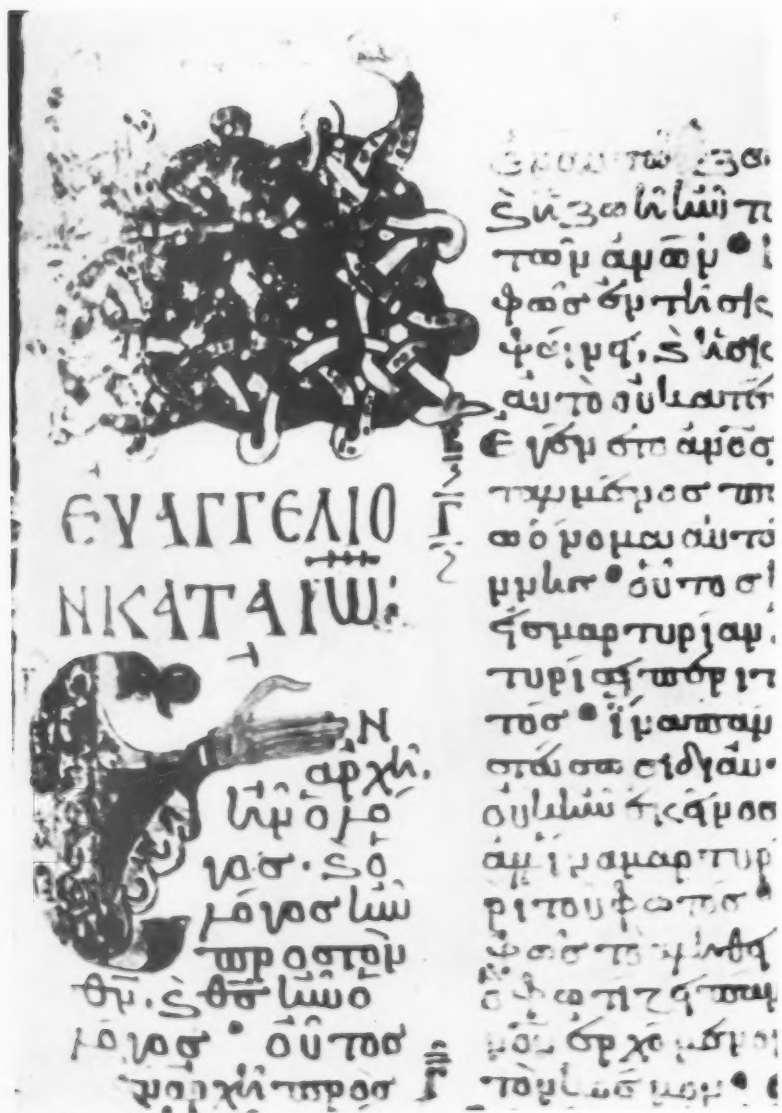 ΕΥΑΓΓΕΛΙΟ
Ν ΚΑΤΑ ΙΩ
Ν
ἀρχῆ
ἦν ὁ λό
γοσ· ϗ ὁ
λόγοσ ἦν
πρὸσ τὸν
θν, ϗ θσ ἦν ὁ
λόγοσ· οὗτοσ
ἦν ἐν ἀρχῆ πρὸσ
ϗ ἡ ζωὴ ἦν τ
τῶν ἀνων·
φῶσ ἐν τῆ σκ
φαίνει, ϗ ἡ σκ
αὐτὸ οὐ κατέ
Ἐγένετο ἀνεσ
ταλμένοσ π
ὄνομα αὐτῶ
οὗτοσ
εἰσ μαρτυρίαν
τυρήση περὶ τ
τόσ· ἵνα παν
στεύσωσι δι αυ
οὐκ ἦν ἐκεῖνοσ
ἀλλ ἵνα μαρτυρ
ρὶ τοῦ φωτόσ·
φῶσ τὸ ἀληθι
ὃ φωτίζει παν
νον ἐρχόμενο
τὸν κόσμον·